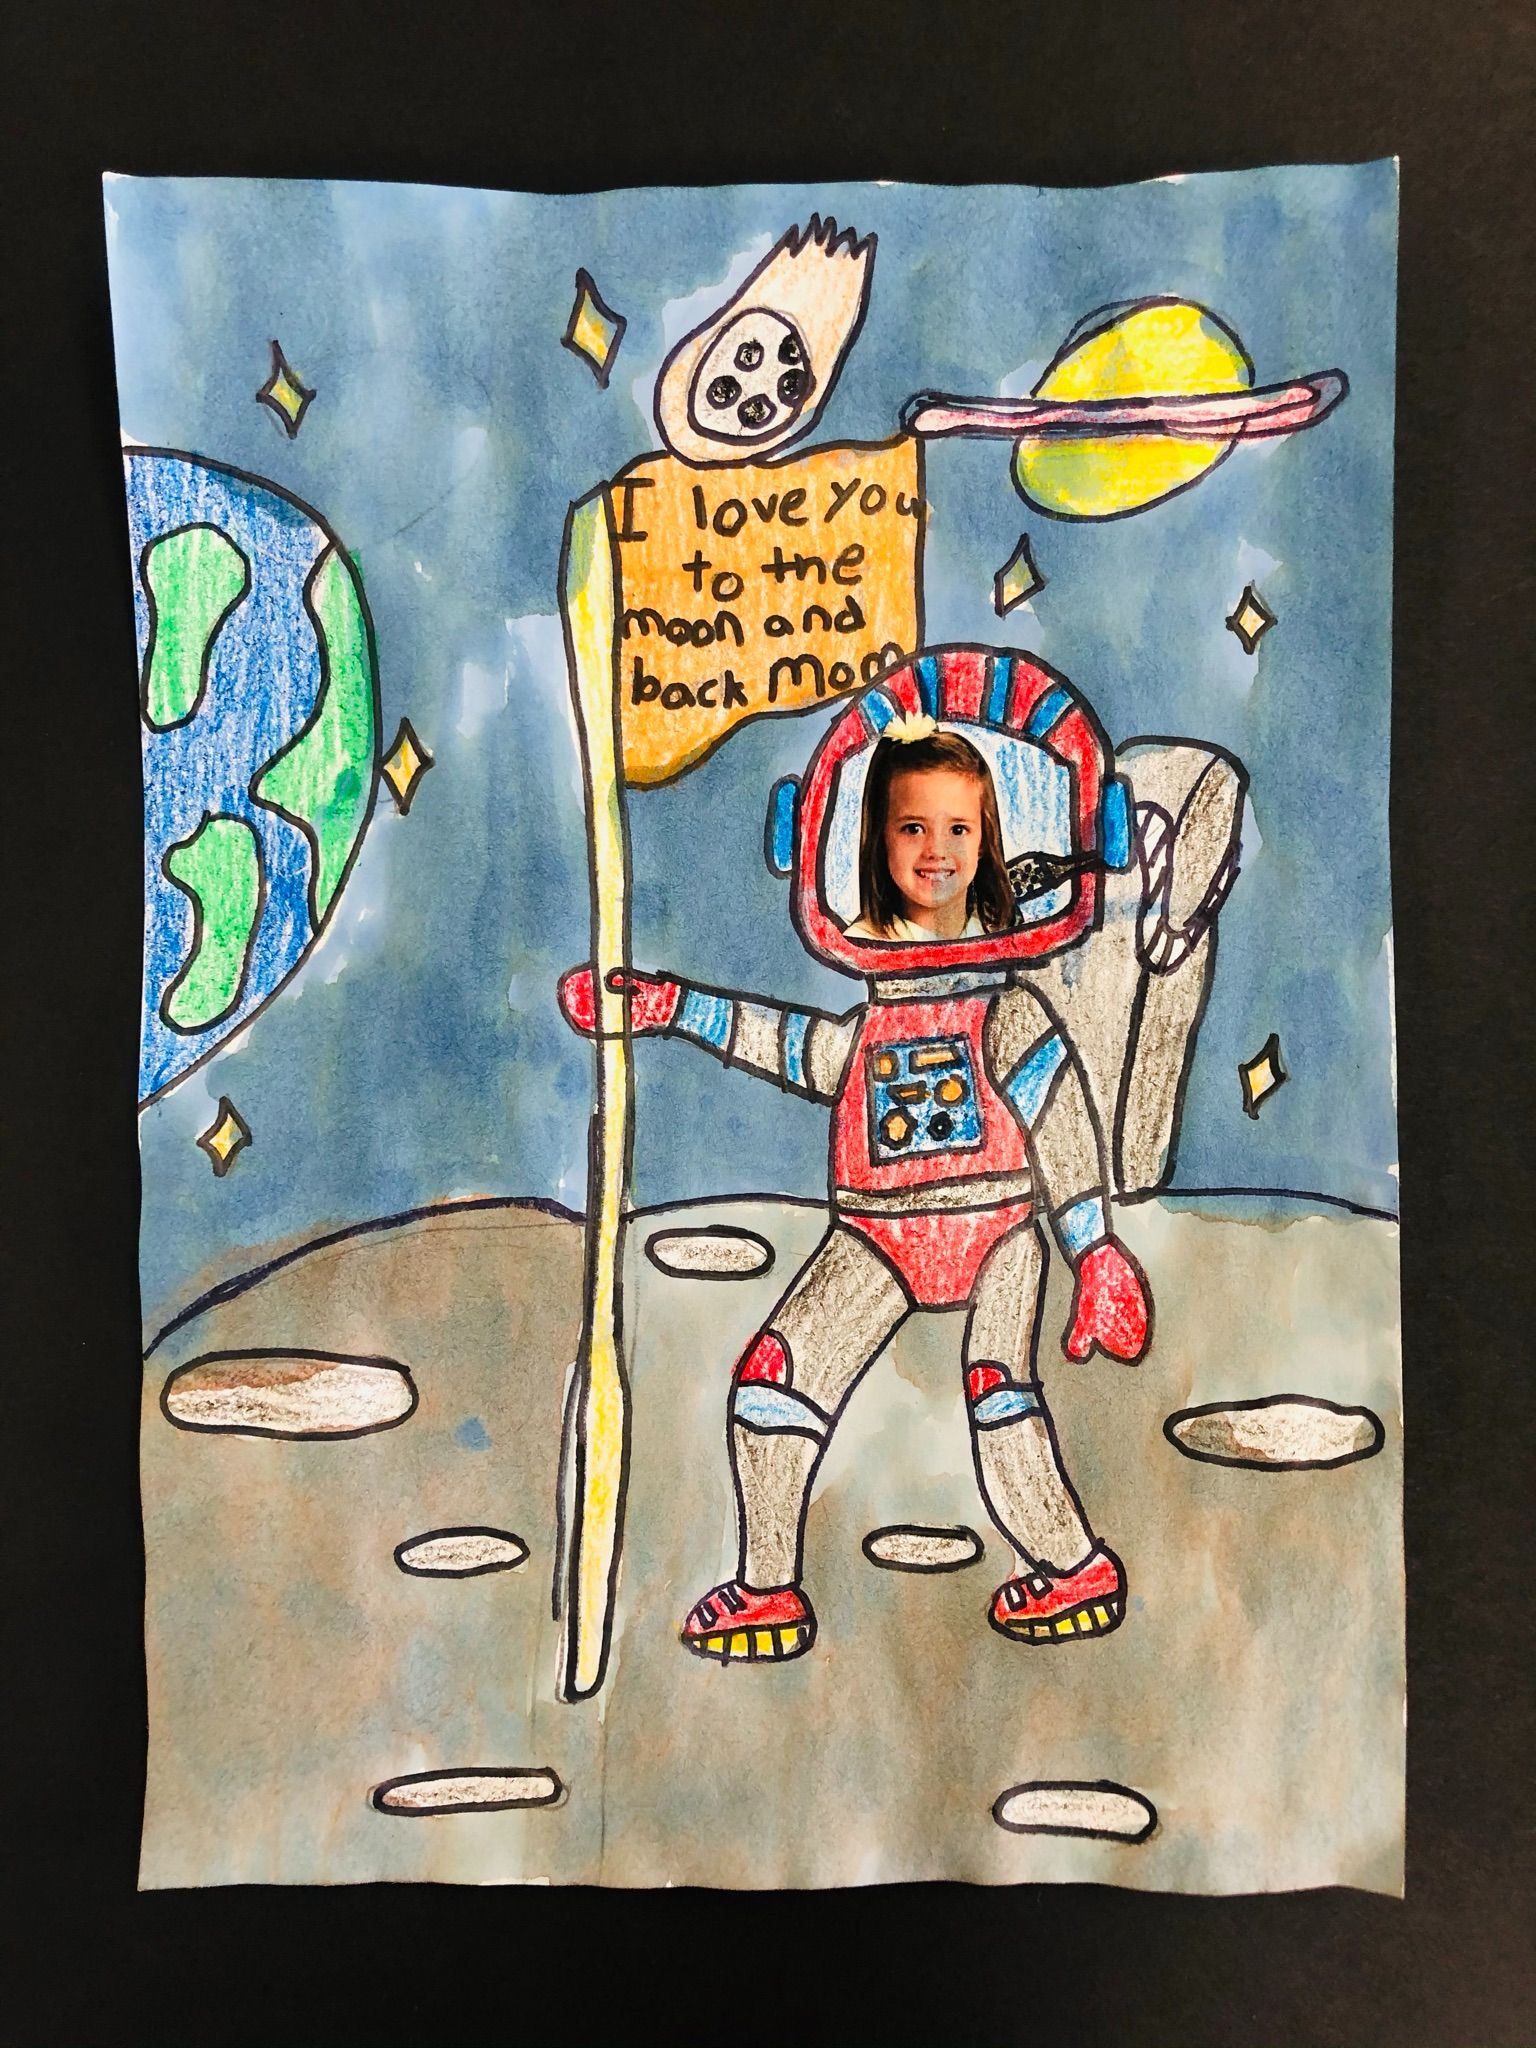 I love you
to the
moon and
back Mom